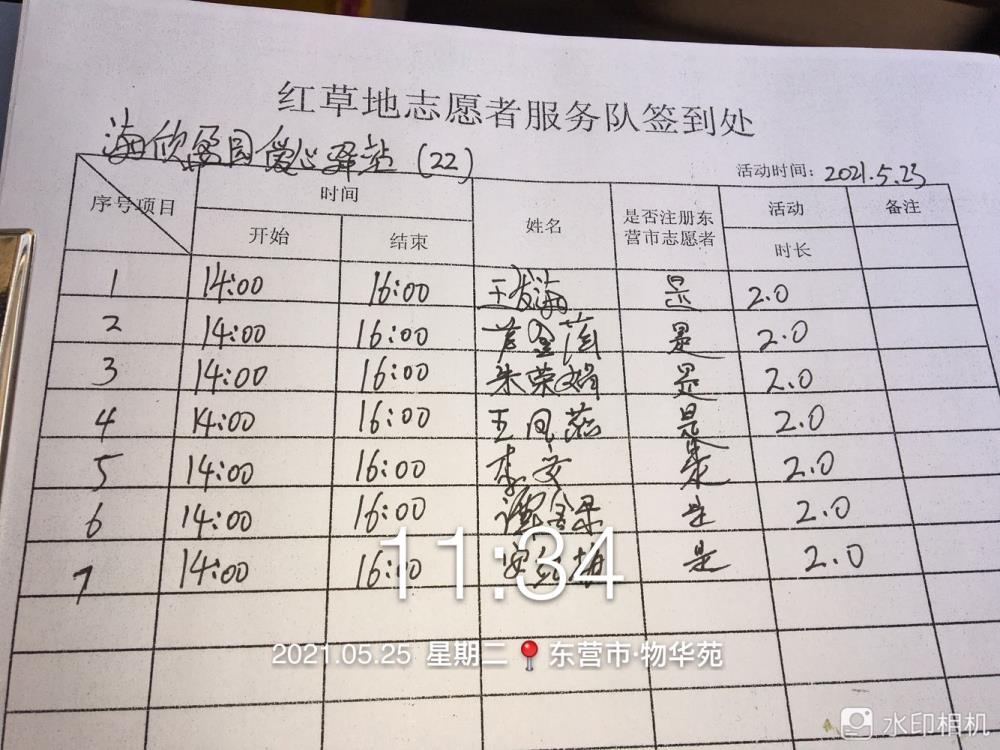 红草地志愿者服务队签到处
海欣 园爱心驿站(22)
活动时间: 2021.5.23
序号项目 时间 姓名 是否注册东营市志愿者 活动 备注
开始 结束 时长
1 14:00 16:00 王 海 是 2.0
2 14:00 16:00 是 2.0
3 14:00 16:00 朱荣娟 是 2.0
4 14:00 16:00 王凤 是 2.0
5 14:00 16:00 李文 是 2.0
6 14:00 16:00 是 2.0
7 14:00 16:00 是 2.0
11:34
2021.05.25 星期二 东营市·物华苑
水印相机